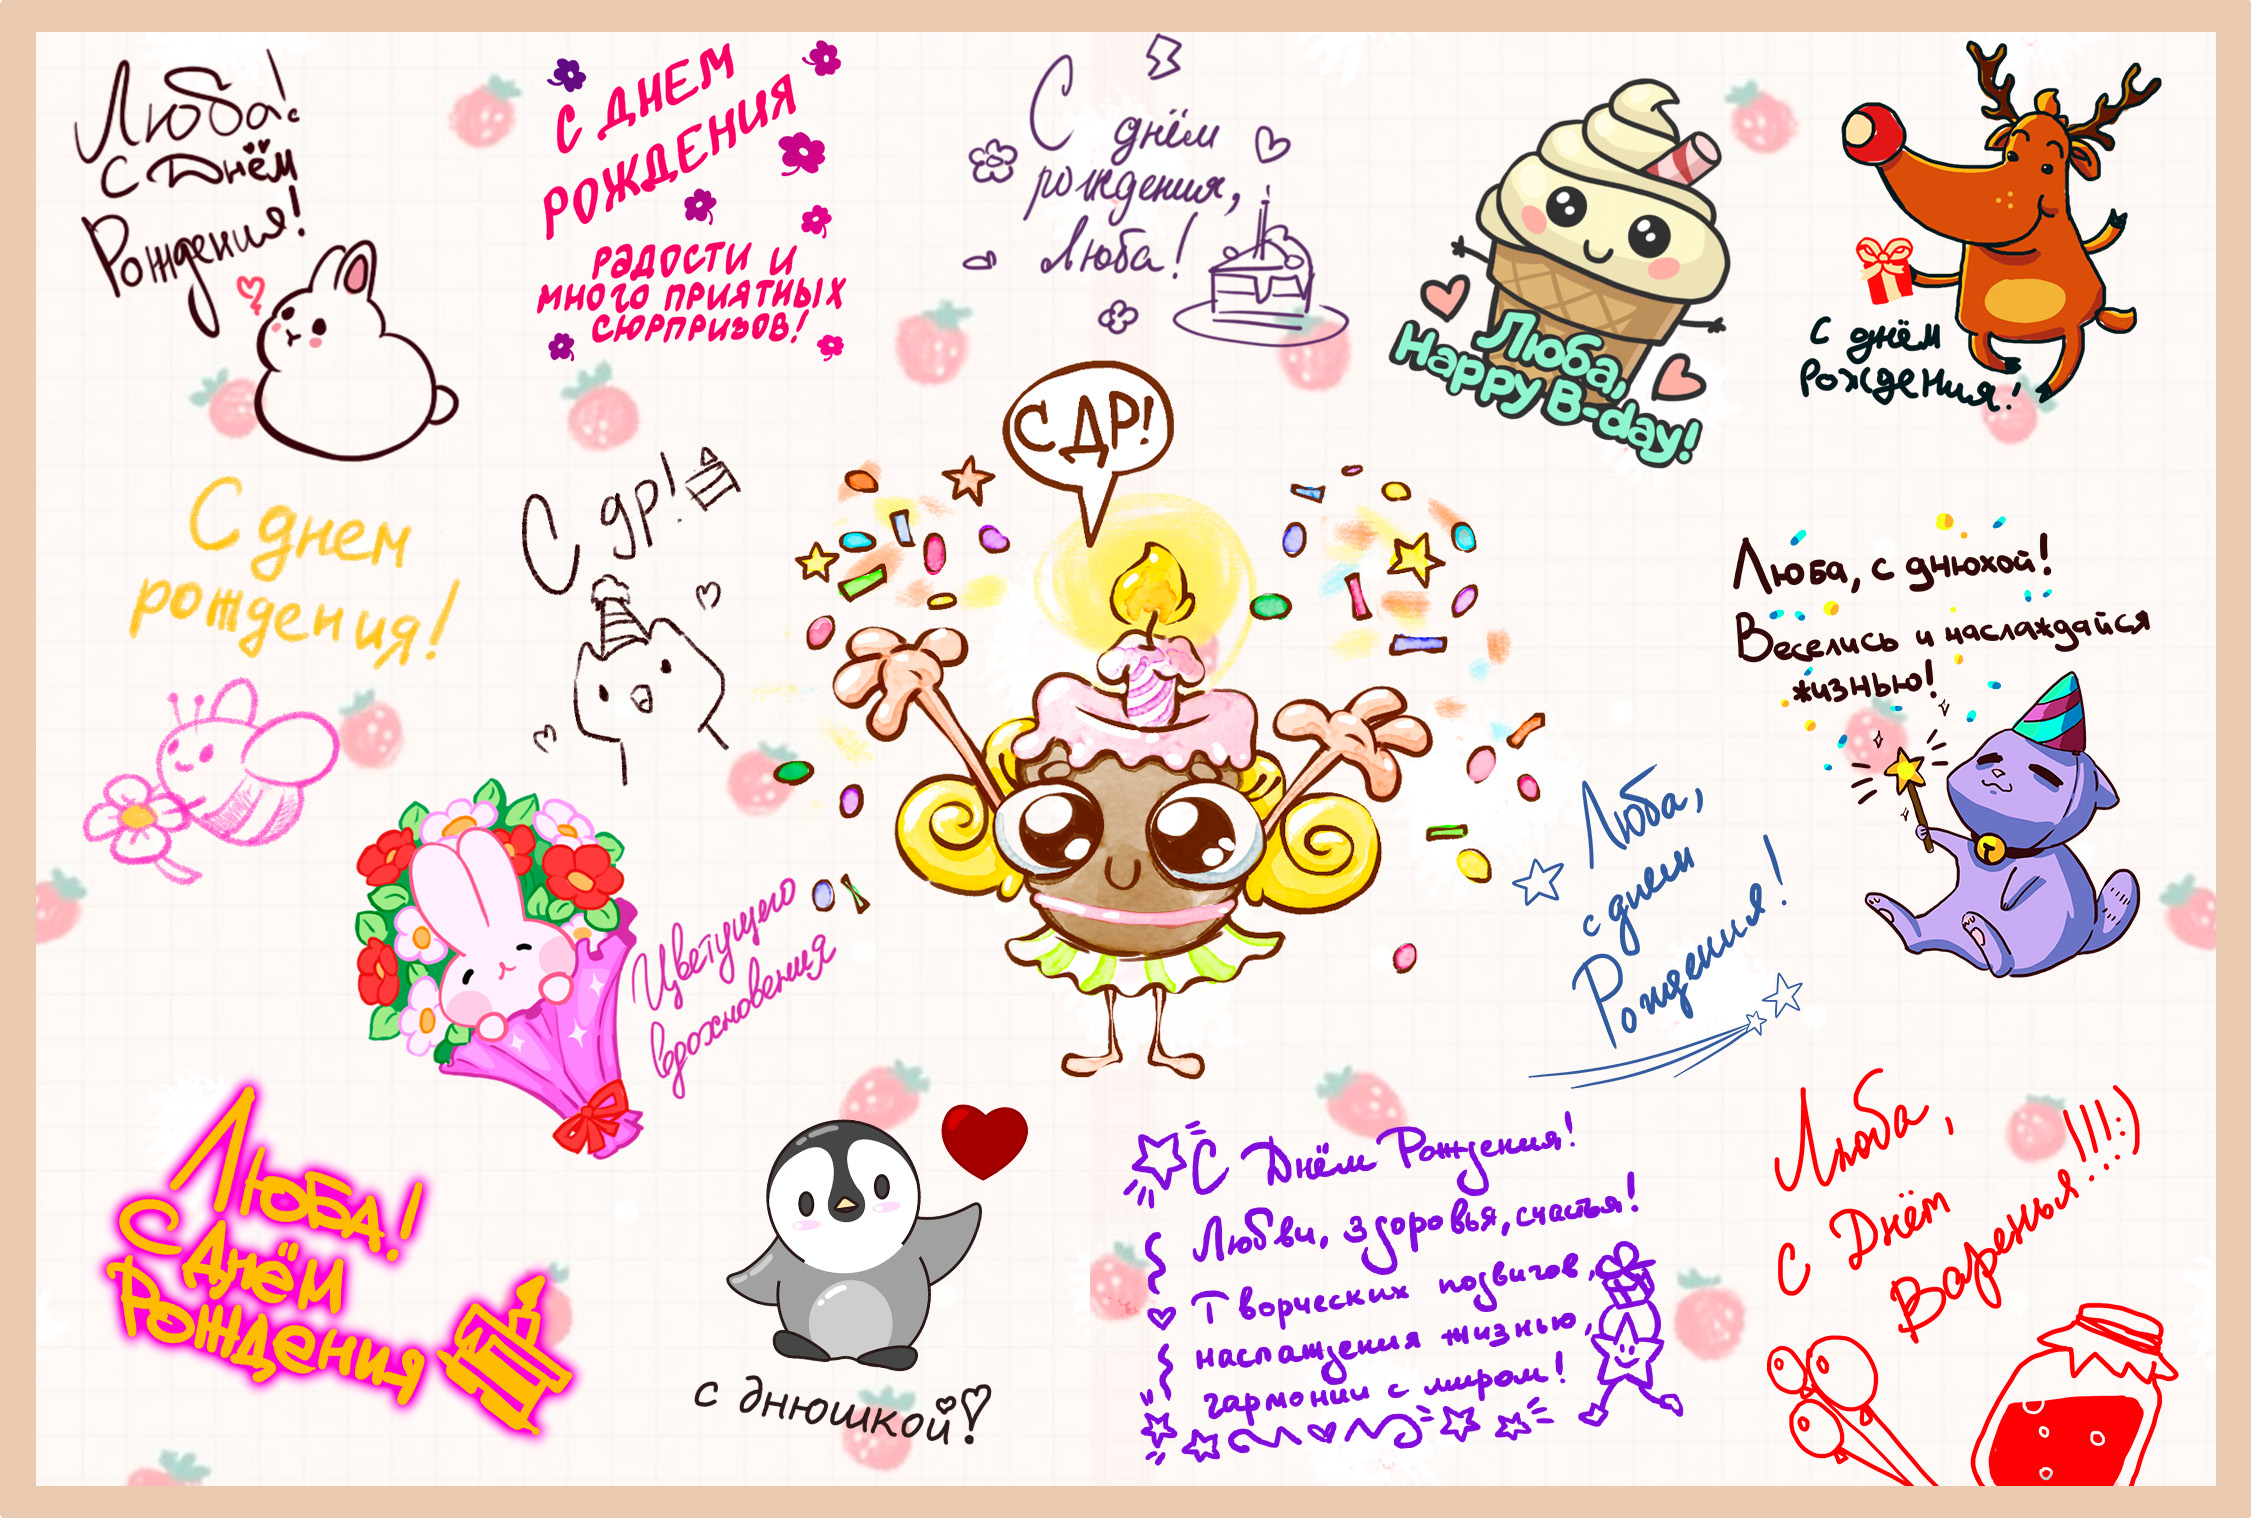 Люба!
С Днём
Рождения!
С ДНЕМ
РОЖДЕНИЯ
РАДОСТИ И
МНОГО ПРИЯТНЫХ
СЮРПРИЗОВ!
С днём
рождения,
Люба!
Люба,
Happy B-day!
С днём
Рождения!
С ДР!
С днем
рождения!
С др!
Люба, с днюхой!
Веселись и наслаждайся
жизнью!
Цветущего
вдохновения
Люба,
с днем
Рождения!
Люба!
С Днём
Рождения
с днюшкой!
С Днём Рождения!
Любви, здоровья, счастья!
Творческих подвигов,
наслаждения жизнью,
гармонии с миром!
Люба,
С Днём
Варенья!!!:)